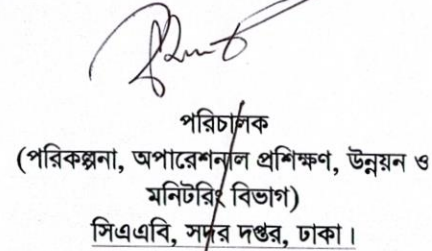 পরিচালক
(পরিকল্পনা, অপারেশনাল প্রশিক্ষণ, উন্নয়ন ও
মনিটরিং বিভাগ)
সিএএবি, সদর দপ্তর, ঢাকা।